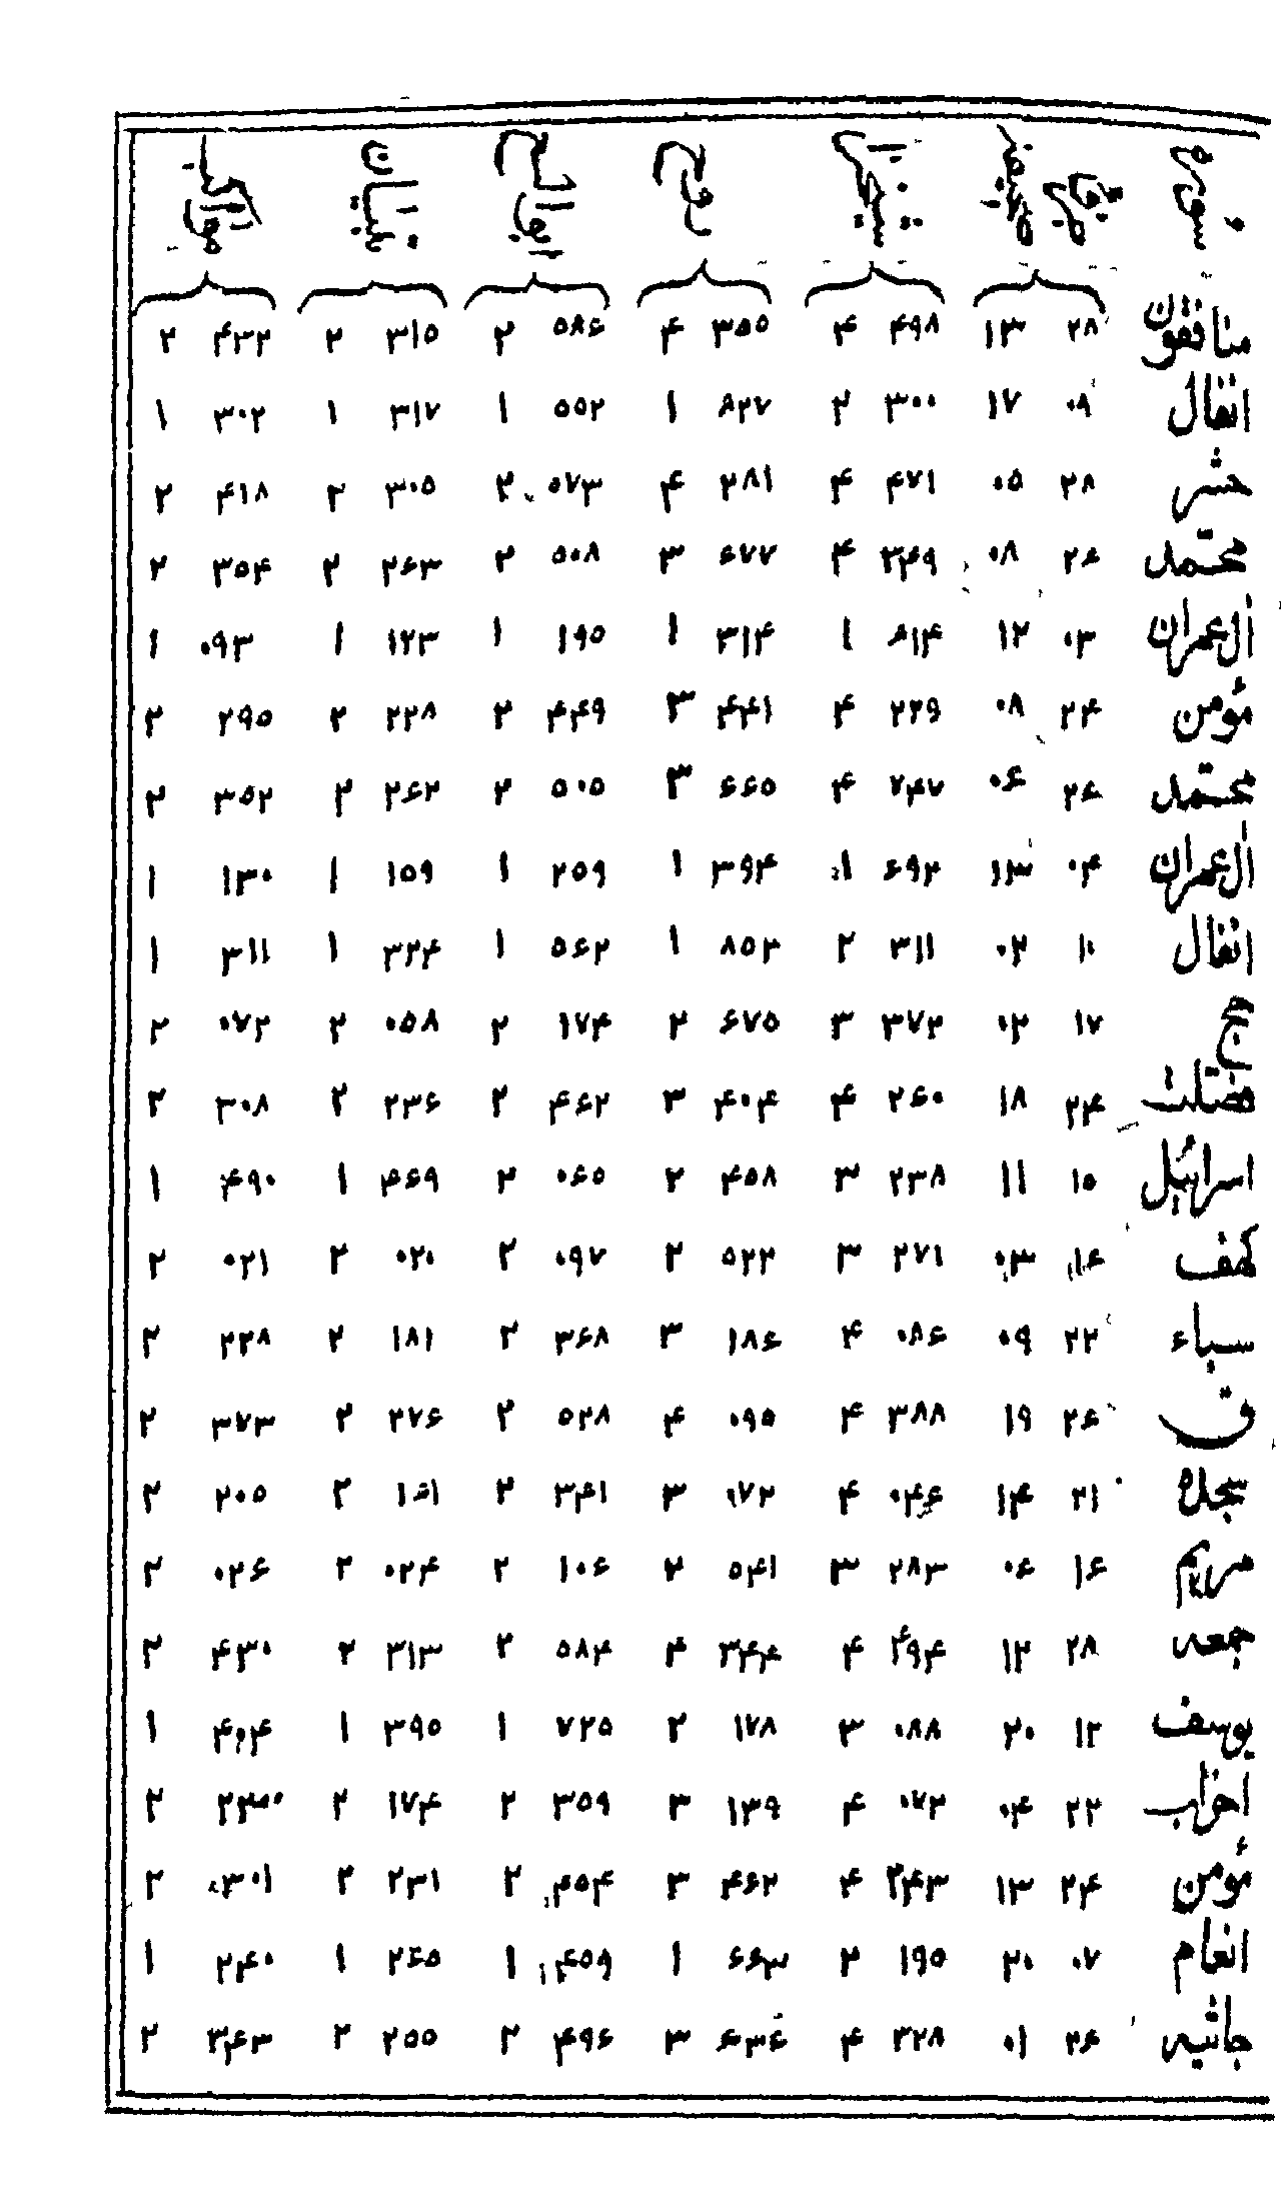 منافقون ۲۸ ۱۳ ۴۹۸ ۴ ۳۵۵ ۴ ۵۸۶ ۲ ۳۱۵ ۲ ۴۳۲ ۲
انفال ۰۹ ۱۷ ۳۰۰ ۲ ۸۲۷ ۱ ۵۵۲ ۱ ۳۱۷ ۱ ۳۰۲ ۱
حشر ۲۸ ۰۵ ۴۷۱ ۴ ۲۸۱ ۴ ۵۷۳ ۲ ۳۰۵ ۲ ۴۱۸ ۲
محمّد ۲۶ ۰۸ ۴ ۶۷۷ ۳ ۵۰۸ ۲ ۲۶۳ ۲ ۳۵۴ ۲
اٰل عمران ۰۳ ۱۲ ۸۱۴ ۱ ۳۱۴ ۱ ۱۹۵ ۱ ۱۲۳ ۱ ۰۹۳ ۱
مؤمن ۲۴ ۰۸ ۲۲۹ ۴ ۴۴۱ ۳ ۴۴۹ ۲ ۲۲۸ ۲ ۲۹۵ ۲
محمّد ۲۶ ۰۶ ۷۴۷ ۴ ۶۶۵ ۳ ۵۰۵ ۲ ۲۶۲ ۲ ۳۵۲ ۲
اٰل عمران ۰۴ ۱۳ ۶۹۲ ۱ ۳۹۴ ۱ ۲۵۹ ۱ ۱۵۹ ۱ ۱۳۰ ۱
انفال ۱۰ ۰۲ ۳۱۱ ۲ ۸۵۳ ۱ ۵۶۲ ۱ ۳۲۴ ۱ ۳۱۱ ۱
حج ۱۷ ۰۳ ۳۷۲ ۳ ۶۷۵ ۲ ۱۷۴ ۲ ۰۵۸ ۲ ۰۷۲ ۲
فصّلت ۲۴ ۱۸ ۲۶۰ ۴ ۴۰۴ ۳ ۴۶۲ ۲ ۲۳۶ ۲ ۳۰۸ ۲
اسرائیل ۱۵ ۱۱ ۲۳۸ ۳ ۴۵۸ ۲ ۰۶۵ ۲ ۴۶۹ ۱ ۴۹۰ ۱
کهف ۱۶ ۰۳ ۲۷۱ ۳ ۵۲۲ ۲ ۰۹۷ ۲ ۰۲۰ ۲ ۰۲۱ ۲
سباء ۲۲ ۰۹ ۰۸۶ ۴ ۱۸۶ ۳ ۳۶۸ ۲ ۱۸۱ ۲ ۲۲۸ ۲
ق ۲۶ ۱۹ ۳۸۸ ۴ ۰۹۵ ۴ ۵۲۸ ۲ ۲۷۶ ۲ ۳۷۳ ۲
سجدہ ۲۱ ۱۴ ۰۴۶ ۴ ۰۷۲ ۳ ۳۴۱ ۲ ۲ ۲۰۵ ۲
مریم ۱۶ ۰۶ ۲۸۳ ۳ ۵۴۱ ۲ ۱۰۶ ۲ ۰۲۴ ۲ ۰۲۶ ۲
جمعه ۲۸ ۱۲ ۴۹۴ ۴ ۳۴۴ ۴ ۵۸۴ ۲ ۳۱۳ ۲ ۴۳۰ ۲
یوسف ۱۲ ۲۰ ۰۸۸ ۳ ۱۷۸ ۲ ۷۲۵ ۱ ۳۹۵ ۱ ۴۰۴ ۱
احزاب ۲۲ ۰۴ ۰۷۲ ۴ ۱۳۹ ۳ ۳۵۹ ۲ ۱۷۴ ۲ ۲
مؤمن ۲۴ ۱۳ ۲۴۳ ۴ ۴۶۲ ۳ ۴۵۴ ۲ ۲۳۱ ۲ ۳۰۱ ۲
انعام ۰۷ ۲۰ ۱۹۵ ۲ ۶۶۳ ۱ ۴۵۹ ۱ ۲۶۵ ۱ ۲۴۰ ۱
جاثیه ۲۶ ۰۱ ۳۲۸ ۴ ۶۳۶ ۳ ۴۹۶ ۲ ۲۵۵ ۲ ۳۴۳ ۲